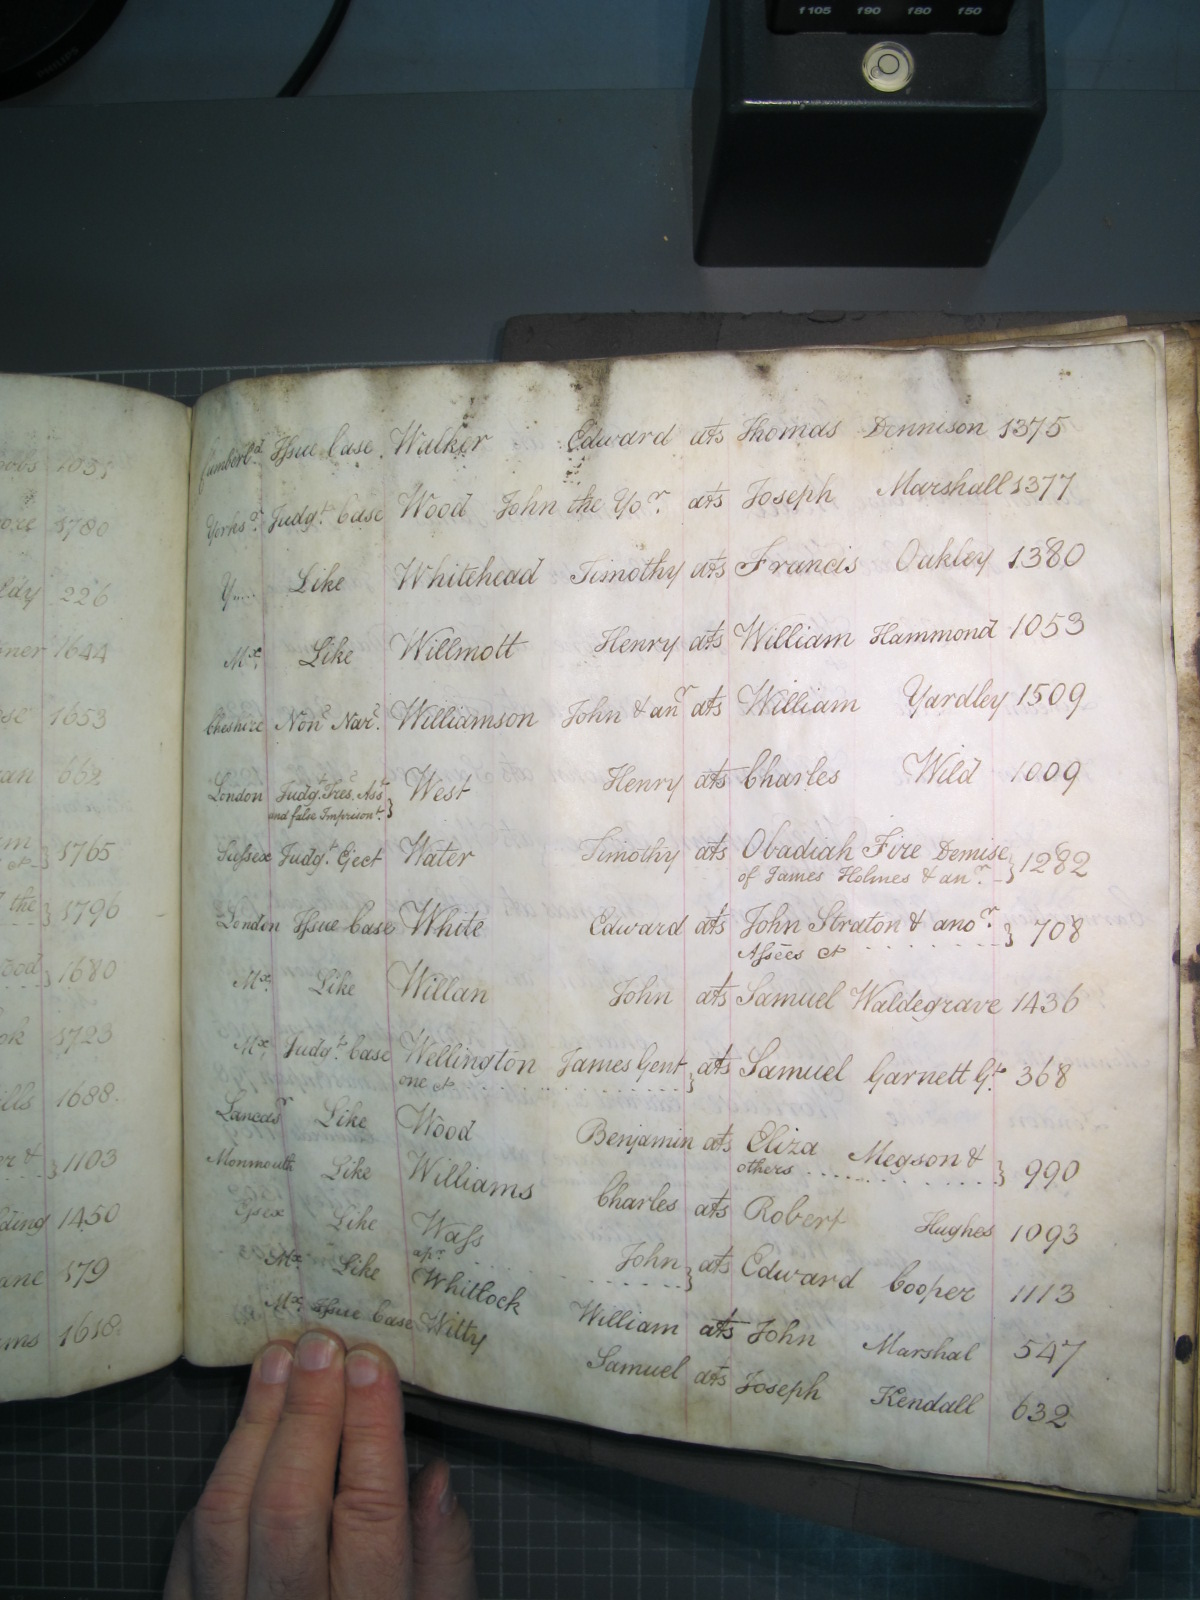 PHILIPS
f105 f90 f80 f50
1780
226
1644
1653
662
1765
the } 1796
1680
1723
1688
1103
1450
579
1618
Cumberld. Issue Case Walker Edward ats Thomas Dennison 1375
Yorks. Judgt. Case Wood John the Yor. ats Joseph Marshall 1377
Y.... Like Whitehead Timothy ats Francis Oakley 1380
Mx. Like Willmott Henry ats William Hammond 1053
Cheshire Non Nar. Williamson John & anr ats William Yardley 1509
London Judgt. Tres. Asst. West Henry ats Charles Wild 1009
and false Imprisont. }
Sussex Judgt. Eject Water Timothy ats Obadiah Fire Demise } 1282
of James Holmes & anr.
London Issue Case White Edward ats John Straton & anor. } 708
Assees &c
Mx. Like Willan John ats Samuel Waldegrave 1436
Mx. Judgt. Case Wellington James Gent } ats Samuel Garnett Gt. 368
one &c
Lancasr Like Wood Benjamin ats Eliza Megson & } 990
others
Monmouth Like Williams Charles ats Robert Hughes 1093
Essex Like Wass John } ats Edward Cooper 1113
Mx. Like Whitlock William ats John Marshal 547
Mx. Issue Case Witty Samuel ats Joseph Kendall 632